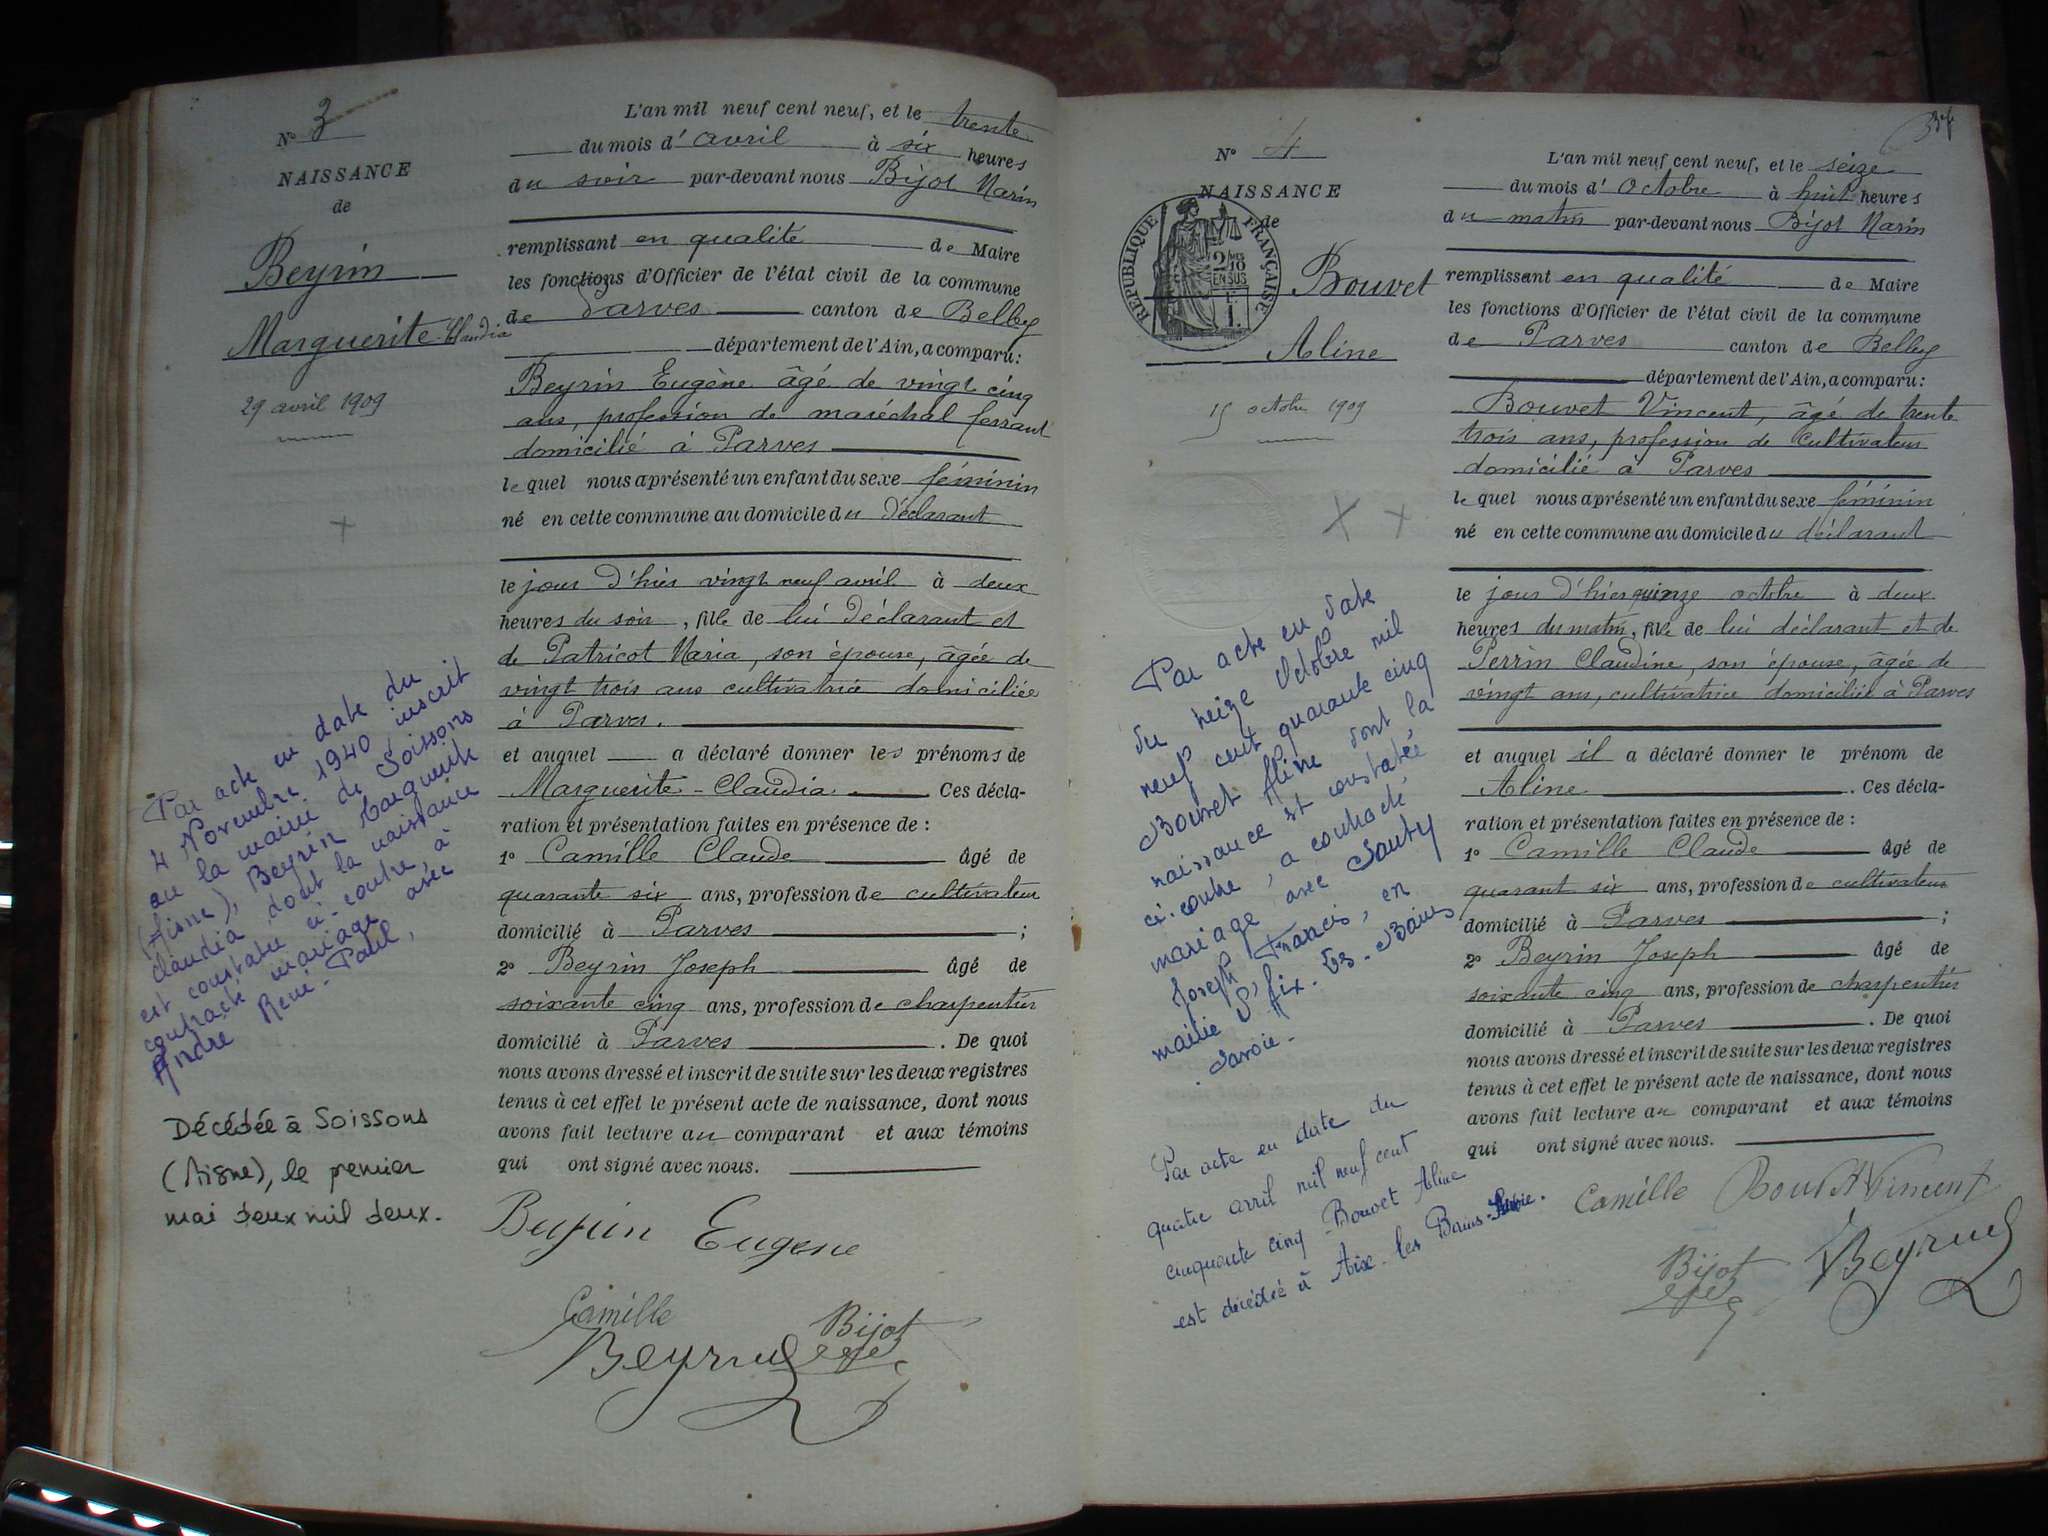 N° 3
NAISSANCE
de
Beyrin
Marguerite-Claudia
29 avril 1909
Par acte en date du
4 Novembre 1940, inscrit
au la mairie de Soissons
(Aisne), Beyrin Marguerite
Claudia dont la naissance
est constatée ci-contre, à
contracté mariage avec
André René-Paul,
Décédée à Soissons
(Aisne), le premier
mai deux mil deux.
L'an mil neuf cent neuf, et le trente
du mois d'avril à six heures
du soir par-devant nous Bijot Marin
remplissant en qualité de Maire
les fonctions d'Officier de l'état civil de la commune
de Parves canton de Belley
département de l'Ain, a comparu:
Beyrin Eugène âgé de vingt cinq
ans, profession de maréchal ferrant
domicilié à Parves
lequel nous a présenté un enfant du sexe féminin
né en cette commune au domicile du déclarant
le jour d'hier vingt neuf avril à deux
heures du soir, fille de lui déclarant et
de Patricot Maria, son épouse, âgée de
vingt trois ans cultivatrice domiciliée
à Parves.
et auquel a déclaré donner les prénoms de
Marguerite-Claudia. Ces décla-
ration et présentation faites en présence de :
1° Camille Claude âgé de
quarante six ans, profession de cultivateur
domicilié à Parves ;
2° Beyrin Joseph âgé de
soixante cinq ans, profession de charpentier
domicilié à Parves . De quoi
nous avons dressé et inscrit de suite sur les deux registres
tenus à cet effet le présent acte de naissance, dont nous
avons fait lecture au comparant et aux témoins
qui ont signé avec nous.
Beyrin Eugene
Camille Bijot
Beyrin
N° 4
NAISSANCE
de
RÉPUBLIQUE FRANÇAISE
2/10
EN SUS
Bouvet
Aline
15 octobre 1909
Par acte en date
du seize Octobre mil
neuf cent quarante cinq
Bouvet Aline dont la
naissance est constatée
ci-contre, a contracté
mariage avec Sauty
Joseph Francis, en
mairie d'Aix-les-Bains
Savoie-
Par acte en date du
quatre avril mil neuf cent
cinquante cinq Bouvet Aline
est décédée à Aix-les Bains-Savoie.
L'an mil neuf cent neuf, et le seize
du mois d'Octobre à huit heures
du matin par-devant nous Bijot Marin
remplissant en qualité de Maire
les fonctions d'Officier de l'état civil de la commune
de Parves canton de Belley
département de l'Ain, a comparu:
Bouvet Vincent, âgé de trente
trois ans, profession de cultivateur
domicilié à Parves
lequel nous a présenté un enfant du sexe féminin
né en cette commune au domicile du déclarant
le jour d'hier quinze octobre à deux
heures du matin, fille de lui déclarant et de
Perrin Claudine, son épouse, âgée de
vingt ans, cultivatrice domiciliée à Parves
et auquel il a déclaré donner le prénom de
Aline . Ces décla-
ration et présentation faites en présence de :
1° Camille Claude âgé de
quarant six ans, profession de cultivateur
domicilié à Parves ;
2° Beyrin Joseph âgé de
soixante cinq ans, profession de charpentier
domicilié à Parves . De quoi
nous avons dressé et inscrit de suite sur les deux registres
tenus à cet effet le présent acte de naissance, dont nous
avons fait lecture au comparant et aux témoins
qui ont signé avec nous.
Camille Bouvet Vincent
Bijot Beyrin